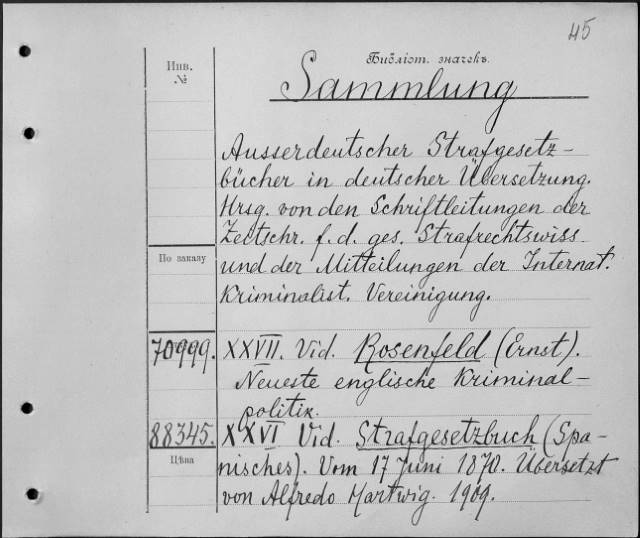 45
Инв.
№
Библіот. значекъ.
Sammlung
Ausserdeutscher Strafgesetz-
bücher in deutscher Übersetzung.
Hrsg. von den Schriftleitungen der
Zeitschr. f. d. ges. Strafrechtswiss.
По заказу
und der Mitteilungen der Internat.
Kriminalist. Vereinigung.
70999. XXVII. Vid. Rosenfeld (Ernst).
Neueste englische Kriminal-
politik.
88345. XXVI Vid. Strafgesetzbuch (Spa-
Цѣна
nisches). Vom 17 Juni 1870. Übersetzt
von Alfredo Hartwig. 1909.